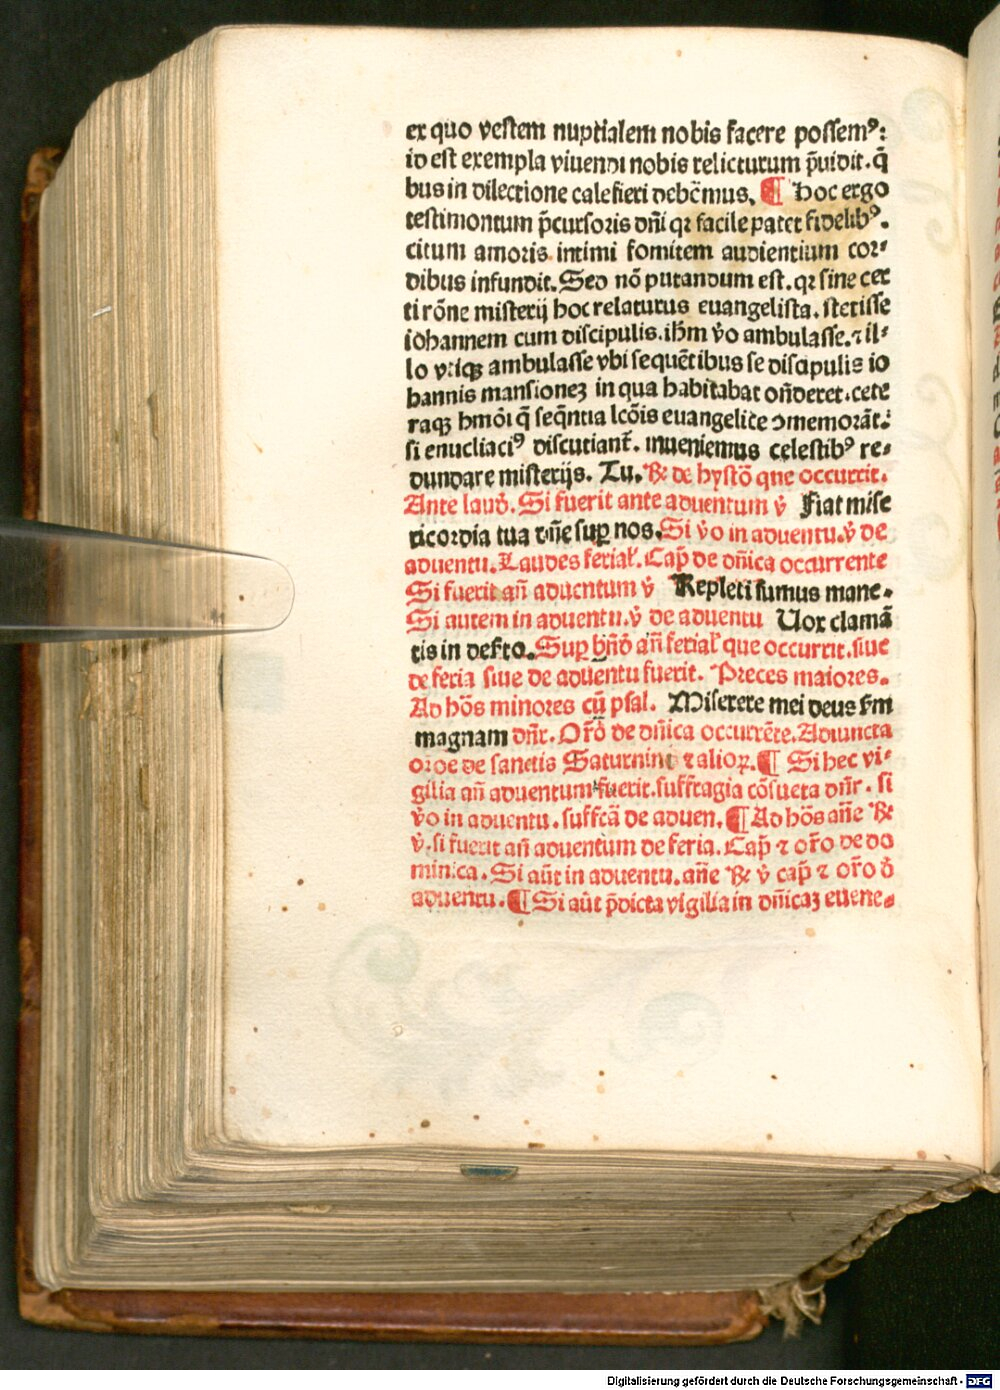 ex quo vestem nuptialem nobis facere possemꝰ:
id est exempla viuendi nobis relicturum p̄uidit. q̄
bus in dilectione calefieri debemus. ¶ Hoc ergo
testimonium p̄cursoris dñi qꝛ facile patet fidelibꝰ.
citum amoris intimi fomitem audientium cor⸗
dibus infundit. Sed nō putandum est. qꝛ sine cer
ti rōne misterij hoc relaturus euangelista. stetisse
iohannem cum discipulis. ihm v̄o ambulasse. ⁊ il⸗
lo vtiqꝫ ambulasse vbi sequētibus se discipulis io
hannis mansioneꝫ in qua habitabat oñderet. cete
raqꝫ hmōi q̄ seq̄ntia lcōis euangelice ꝯmemorāt:
si enucliaciꝰ discutiant̄. inueniemus celestibꝰ re⸗
dundare misterijs. Tu. ℞ de hystō que occurrit.
Ante laud̄. Si fuerit ante aduentum v̄ Fiat mise
ricordia tua dñe suꝑ nos. Si v̄o in aduentu. v̄ de
aduentu. Laudes ferial̄. Cap̄ de dñica occurrente
Si fuerit añ aduentum v̄ Repleti sumus mane.
Si autem in aduentu. v̄ de aduentu Uox clamā
tis in deserto. Suꝑ bñd̄ añ ferial̄ que occurrit. siue
de feria siue de aduentu fuerit. Preces maiores.
Ad hōs minores cū psal. Miserere mei deus sm
magnam dñr. Orō de dñica occurrēte. Adiuncta
oroe de sanctis Saturnino ⁊ alioꝝ. ¶ Si hec vi⸗
gilia añ aduentum fuerit. suffragia cōsueta dñr. si
v̄o in aduentu. suffrā de aduen. ¶ Ad hōs añe ℞
v̄. si fuerit añ aduentum de feria. Cap̄ ⁊ orō de do
minica. Si aūt in aduentu. añe ℞ v̄ cap̄ ⁊ orō d̄
aduentu. ¶ Si aūt p̄dicta vigilia in dñicaꝫ euene⸗
Digitalisierung gefördert durch die Deutsche Forschungsgemeinschaft - DFG